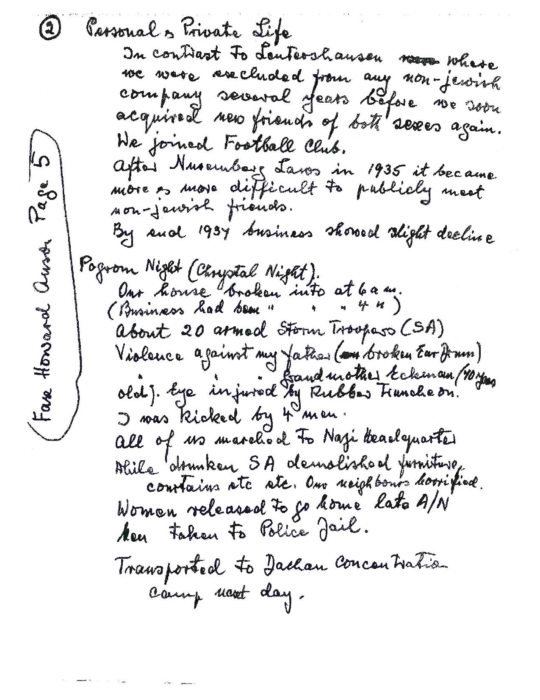 ② Personal & Private Life
In contrast to Leutershausen where
we were excluded from any non-jewish
company several years before we soon
acquired new friends of both sexes again.
We joined Football Club.
After Nuremberg Laws in 1935 it became
more & more difficult to publicly meet
non-jewish friends.
By end 1937 business showed slight decline
Pogrom Night (Chrystal Night).
Our house broken into at 6 a m.
(Business had been " " " 4 ")
About 20 armed Storm Troopers (SA)
Violence against my father (broken Ear Drum)
" " Grandmother Eckman (90 years
old). Eye injured by Rubber Truncheon.
I was kicked by 4 men.
All of us marched to Nazi Headquarter
While drunken SA demolished furniture,
courtains etc etc. Our neighbours horrified.
Women released to go home late A/N
Men taken to Police Jail.
Transported to Dachau Concentration
camp next day.
(Fare Howard Anson Page 5)